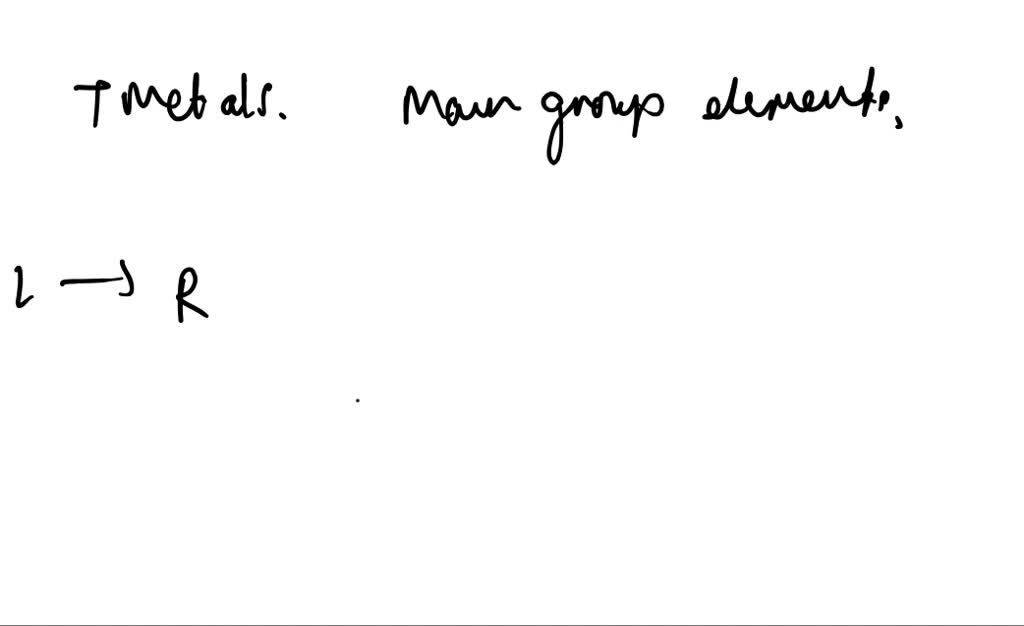 T Metals. Main group elements,
L → R